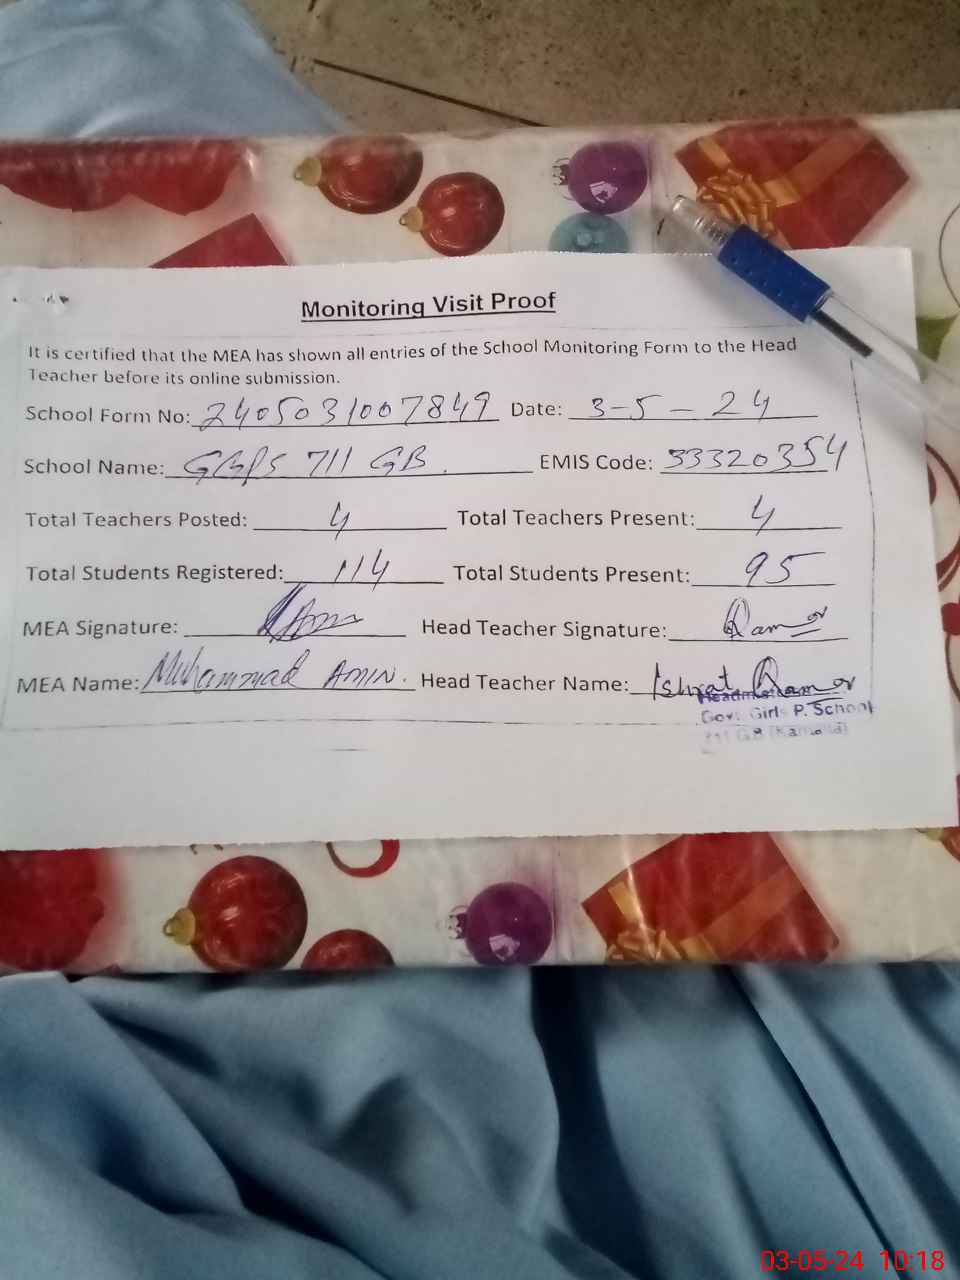 Monitoring Visit Proof
It is certified that the MEA has shown all entries of the School Monitoring Form to the Head
Teacher before its online submission.
School Form No: 2405031007849 Date: 3-5-24
School Name: GGPS 711 GB. EMIS Code: 33320354
Total Teachers Posted: 4 Total Teachers Present: 4
Total Students Registered: 114 Total Students Present: 95
MEA Signature: Amin Head Teacher Signature: Qamar
MEA Name: Muhammad AMIN. Head Teacher Name: Ishrat Qamar
Headmistress
Govt. Girls P. School
711 GB (Kamalia)
03-05-24 10:18